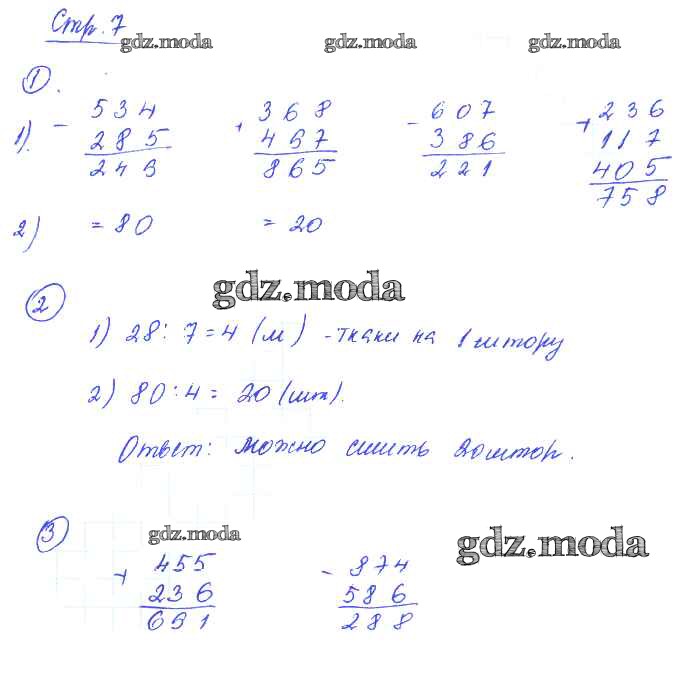 Стр. 7
gdz.moda gdz.moda gdz.moda
1.
1). - 534 + 368 - 607 + 236
285 497 386 117
249 865 221 405
758
2) = 80 = 20
gdz.moda
2
1) 28 : 7 = 4 (м) - ткани на 1 штору
2) 80 : 4 = 20 (шт).
Ответ: можно сшить 20 штор.
3
gdz.moda gdz.moda
+ 455 - 874
236 586
691 288